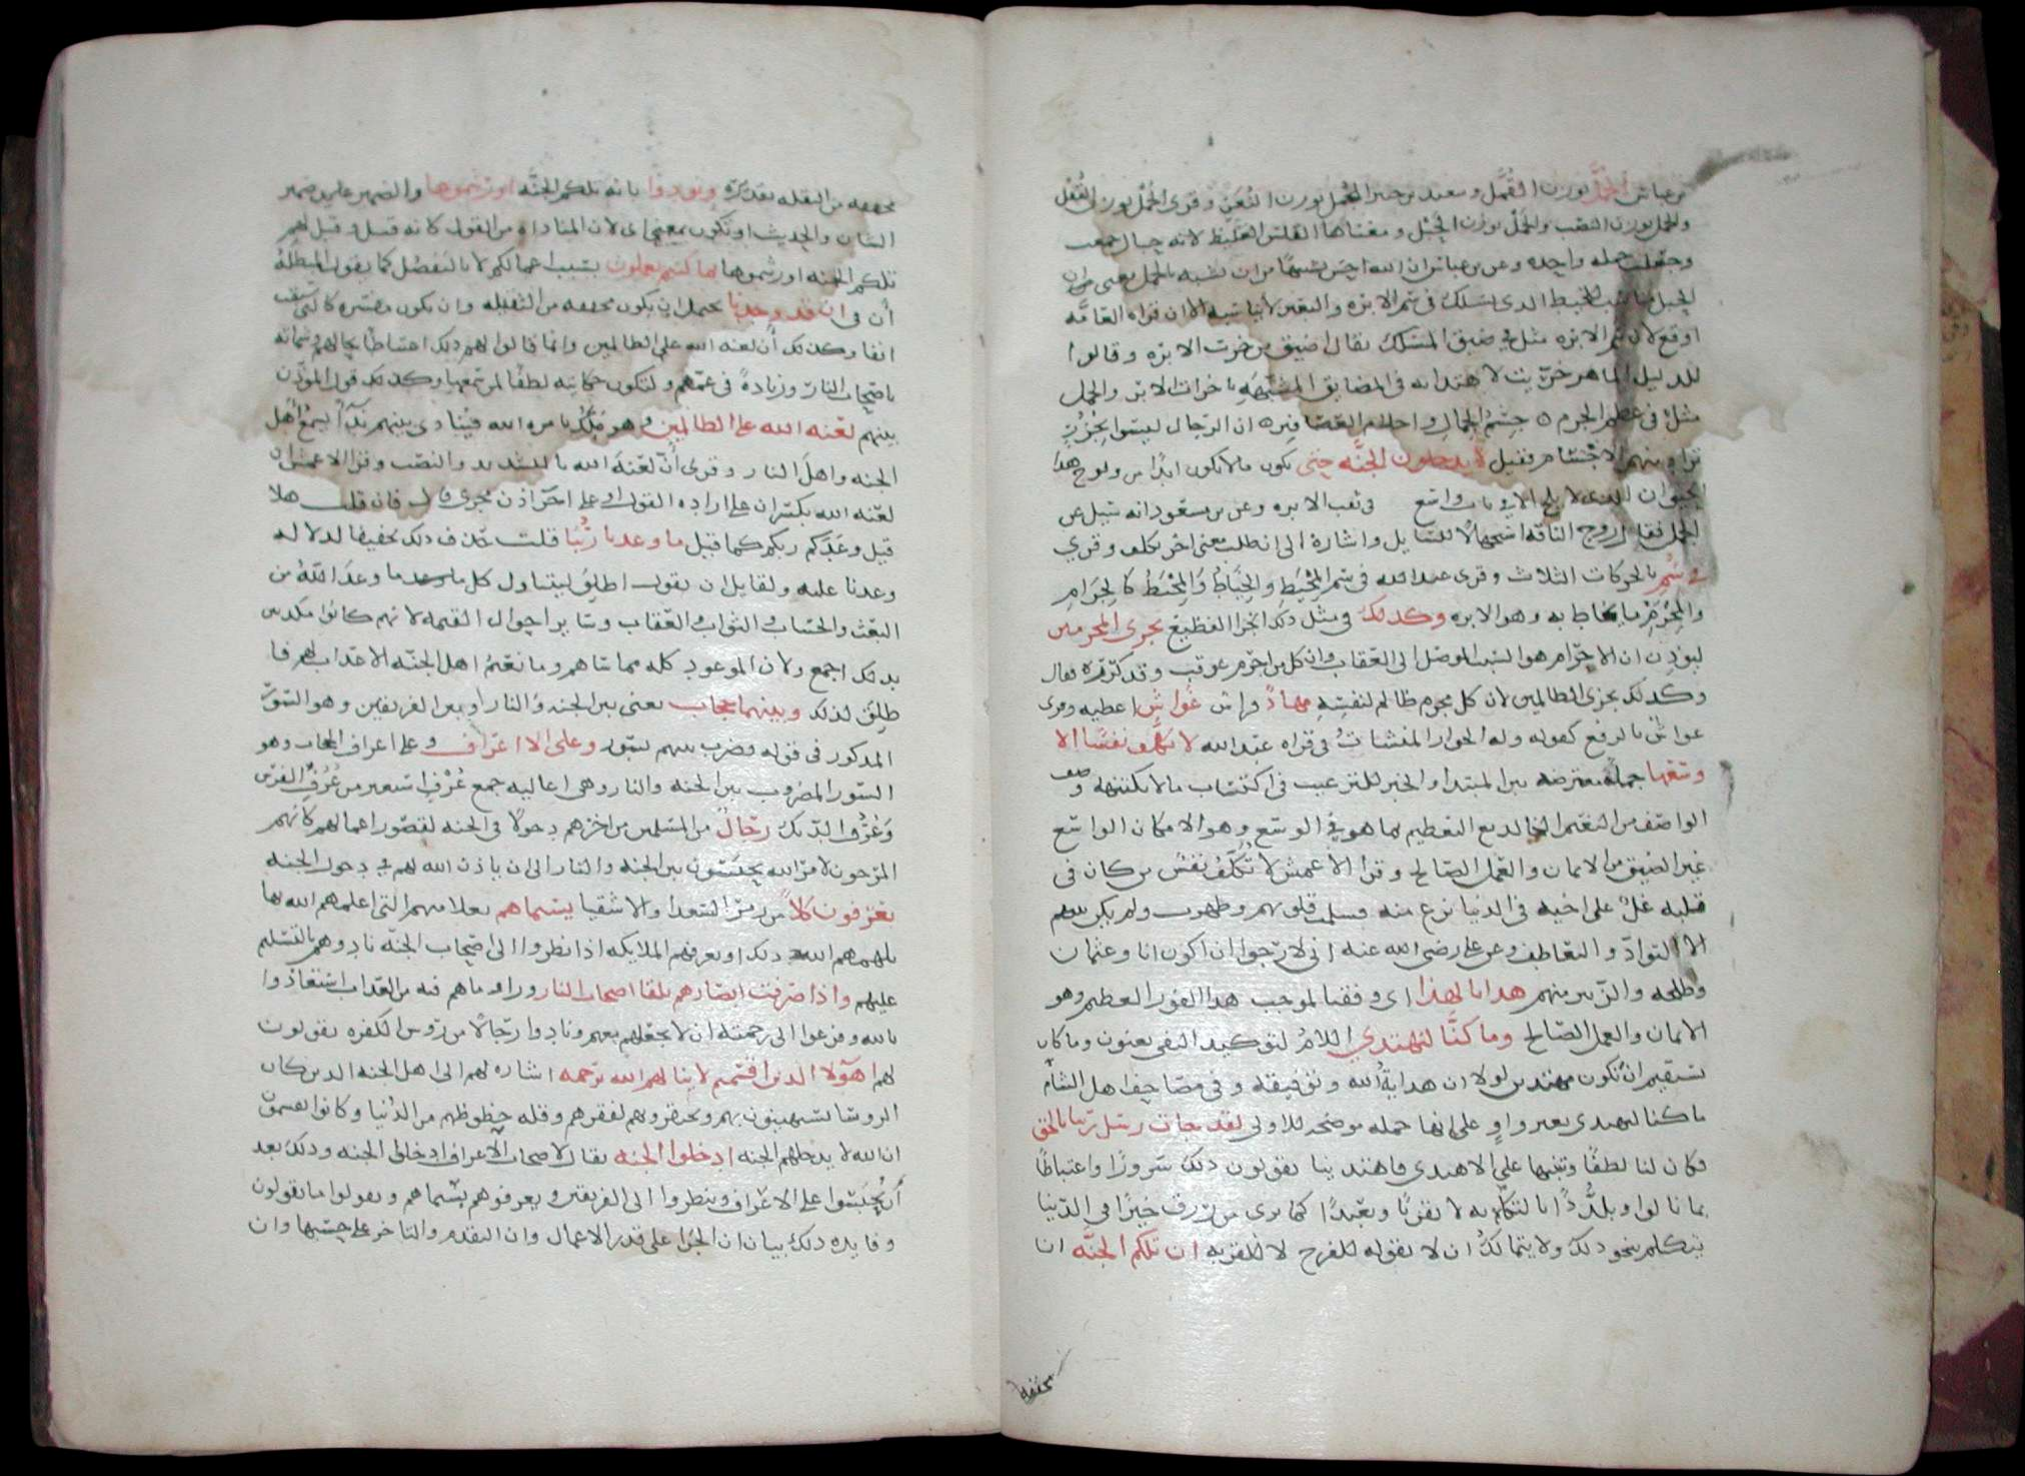 بن عباس الجُمَّل بوزن القُمَّل وسعيد بن جبير الجُمَل بوزن النُغَر وقرئ الجُمْل بوزن القُفْل
والجُمُل بوزن النصب والجَمْل بوزن الحَبْل ومعناها القلس الغليظ لانه حبال جمعت
وجعلت جمله واحده وعن بن عباس ان الله احسن تشبيها من ان يشبه بالجمل يعنى ان
الحبل مناسب للخيط الذى يسلك فى سم الابره والبعير لا يناسبه الا ان قراه العامّه
اوقع لان سم الابره مثل فى ضيق المسلك يقال اضيق من خرت الابره وقالوا
للدليل الماهر خرّيت لاهتدايه فى المضايق المشبّهه باخرات الابر والجمل
مثل فى عظم الجرم ه جسم الجمال واحلام العصافير ه ان الرجال ليسوا بجُزُرٍ
تراد منهم الاجسام فقيل لا يدخلون الجنّه حتى يكون ما لا يكون ابدًا من ولوج هذا
الحيوان الذى لا يلج الا فى باب واسع فى ثقب الابره وعن بن مسعود انه سيل عن
الجمل فقال زوج الناقه استجهالًا للسايل واشارة الى ان طلب معنى اخر تكلف وقرئ
فى سَمّ بالحركات الثلاث وقرى عبد الله فى سم المِخْيَط والخِيَاط والمِخْيَط كالحِزَام
والمِحْزَم ما يخاط به وهو الابره وكذلك فى مثل ذلك الجزا الفظيع نجزى المجرمين
ليؤذن ان الاجرام هو السبب الموصل الى العقاب وان كل من اجرم عوقب وقد كرّره فقال
وكذلك نجزى الظالمين لان كل مجرم ظالم لنفسه مهادٌ فراش غواشٍ اغطيه وقرى
غواشٌ بالرفع كقوله وله الجوار المنشاتُ فى قراه عبد الله لا نكلّف نفسًا الا
وسعها جملة معترضه بين المبتدا والخبر للترغيب فى اكتساب ما لا يكتنهه وصف
الواصف من النعيم الخالد مع التعظيم بما هو فى الوسع وهو الامكان الواسع
غير الضيق من الايمان والعمل الصالح وقرا الاعمش لا تُكَلَّفُ نفسٌ من كان فى
قلبه غلّ على اخيه فى الدنيا نزع منه فسلمت قلوبهم وطهرت ولم يكن بينهم
الا التوادّ والتعاطف وعن على رضى الله عنه انى لارجوا ان اكون انا وعثمان
وطلحه والزبير منهم هدانا لهذا اى وفقنا لموجب هذا الفوز العظيم وهو
الايمان والعمل الصالح وما كنّا لنهتدي اللام لتوكيد النفى يعنون وما كان
يستقيم ان نكون مهتدين لولا ان هدايةُ الله وتوفيقه وفى مصاحف اهل الشام
ما كنا لنهتدى بغير واوٍ على انها جمله موضحه للاولى لقد جات رسل ربنا بالحق
فكان لنا لطفًا وتنبيها على الاهتدى فاهتدينا يقولون ذلك سرورًا واغتباطًا
بما نالوا وتلذُّذًا بالتكلم به لا تقربًا وتعبّدًا كما نرى من رزق خيرًا فى الدنيا
يتكلم بنحو ذلك ولا يتمالك ان لا يقوله للفرح لا للقربه ان تلكم الجنّه ان
مخففه
مخففه من الثقيله تقديره ونودوا بانه تلكم الجنّه اورثتموها والضمير ضمير
الشان والحديث او تكون بمعنى اى لان المناداه من القول كانه قيل وقيل لهم
تلكم الجنه اورثتموها بما كنتم تعملون بسبب اعمالكم لا بالتفضل كما يقول المبطلهُ
أن فى ان قد وجدنا يحتمل ان يكون مخففه من الثقيله وان يكون مفسّره كالتى سبقت
انفا وكذلك أن لعنه الله على الظالمين وانما قالوا لهم ذلك اغتباطًا بحالهم وشماته
باصحاب النار وزيادةً فى غمّهم ولتكون حكايته لطفًا لمن سمعها وكذلك قول المؤذن
بينهم لعنه الله على الظالمين وهو مَلَكٌ يامره الله فينادى بينهم ندآً يُسمع أهل
الجنه واهل النار وقرى أنّ لعنهَ الله بالتشديد والنصب وقرا الاعمش ان
لعنه الله بكسر ان على اراده القول او على اجرا اذن مجرى قال فان قلت هلا
قيل وعدكم ربكم كما قيل ما وعدنا ربُّنا قلت حذف ذلك تخفيفا لدلاله
وعدنا عليه ولقايل ان يقول اطلق ليتناول كل ما وعد الله من
البعث والحساب والثواب والعقاب وساير احوال القيمه لانهم كانوا مكذبين
بذلك اجمع ولان الموعود كله مما ساهم وما نعيم اهل الجنّه الا عذاب لهم فا
طلق لذلك وبينهما حجاب يعنى بين الجنه والنار او بين الفريقين وهو السور
المذكور فى قوله فضرب بينهم بسور وعلى الاعراف وعلى اعراف الحجاب وهو
السور المضروب بين الجنه والنار وهى اعاليه جمع عُرْفٍ استعير من عُرف الفرس
وعُرْف الديك رجالٌ من المسلمين من اخرهم دخولًا فى الجنه لقصور اعمالهم كانهم
المرجون لامر الله يحبسون بين الجنه والنار الى ان ياذن الله لهم فى دخول الجنه
يعرفون كلاً من زمر السعدا والاشقيا بسيماهم بعلامتهم التى اعلمهم الله بها
يلهمهم الله ذلك او تعرفهم الملايكه اذا نظروا الى اصحاب الجنّه نادوهم بالتسليم
عليهم واذا صرفت ابصارهم تلقا اصحاب النار وراوا ما هم فيه من العذاب استعاذوا
بالله وفزعوا الى رحمته ان لا يجعلهم معهم ونادوا رجالًا من رؤس الكفره يقولون
لهم اهولا الذين اقسمتم لا ينالهم الله برحمه اشاره لهم الى اهل الجنه الذين كان
الروسا يستهينون بهم ويحقرونهم لفقرهم وقله حظوظهم من الدُنيا وكانوا يقسمون
ان الله لا يدخلهم الجنه ادخلوا الجنه يقال لاصحاب الاعراف ادخلوا الجنه وذلك بعد
أن يُحبَسوا على الاعراف وينظروا الى الفريقين ويعرفوهم بسيماهم ويقولوا ما يقولون
وفايده ذلك بيان ان الجزا على قدر الاعمال وان التقدم والتاخر على حسبها وان